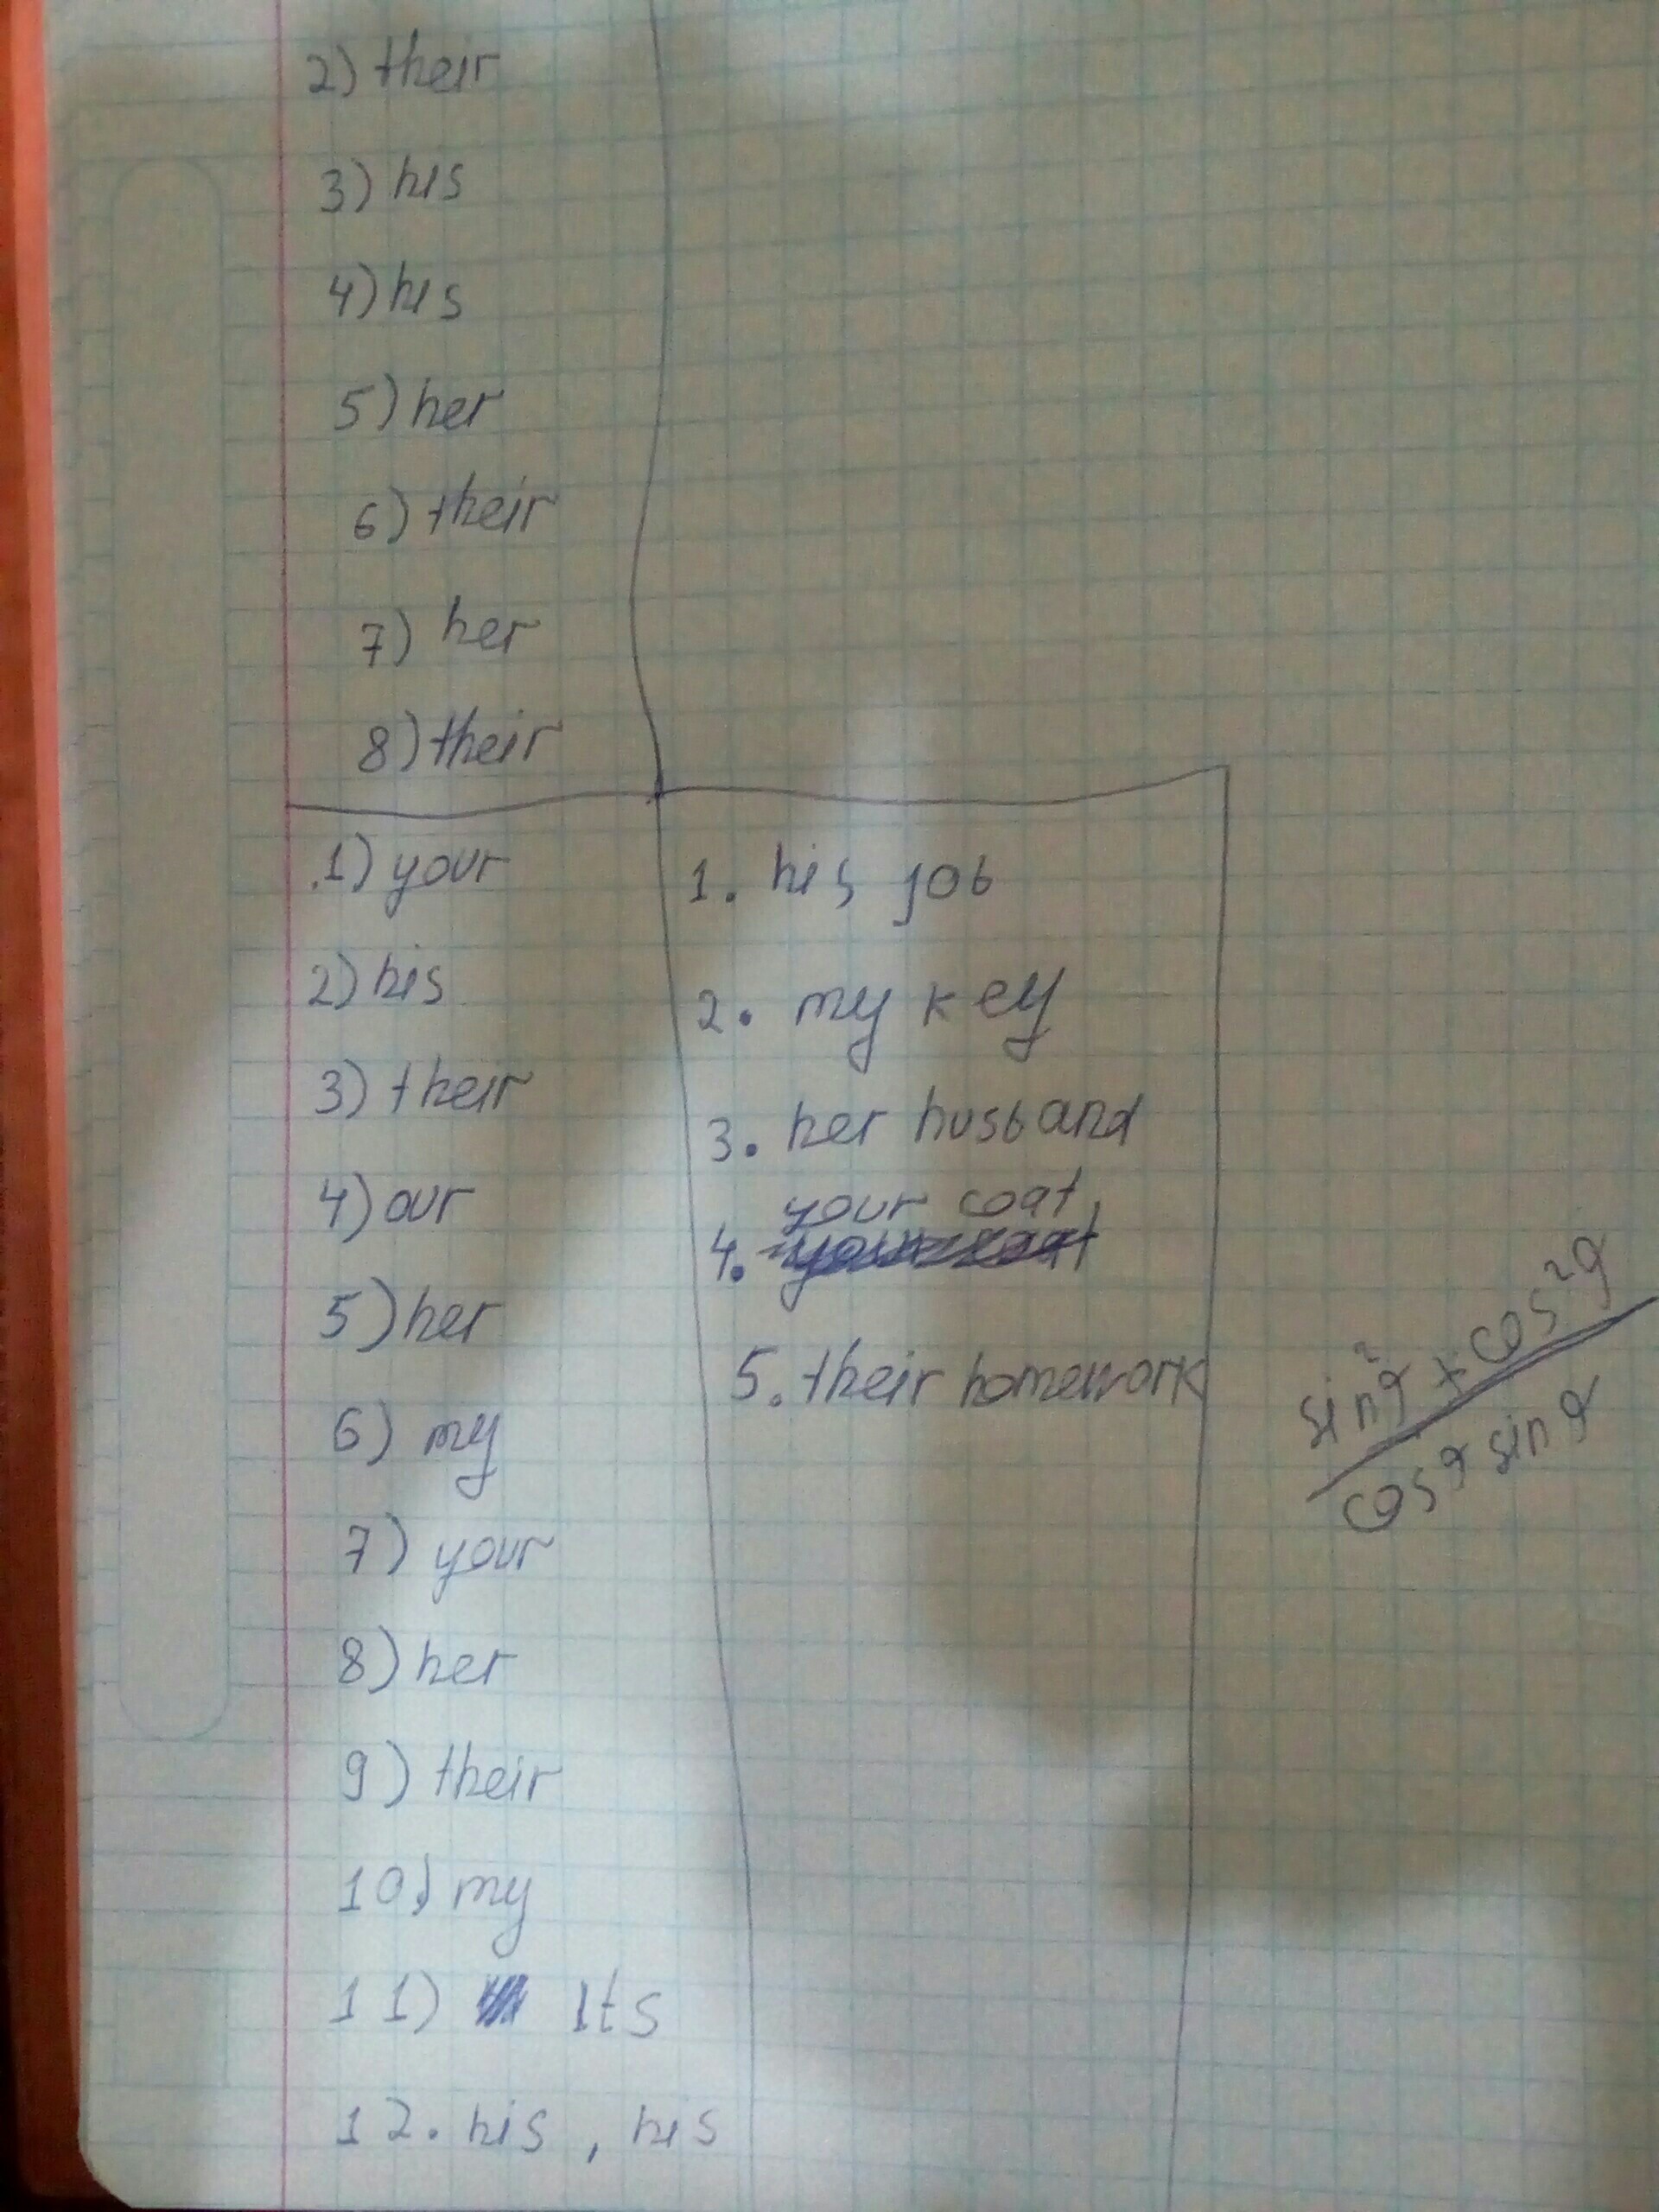 2) their
3) his
4) his
5) her
6) their
7) her
8) their
1) your
2) his
3) their
4) our
5) her
6) my
7) your
8) her
9) their
10) my
11) Its
12. his, his
1. his job
2. my key
3. her husband
4. your coat
5. their homework
sin²α + cos²α
cosα sinα